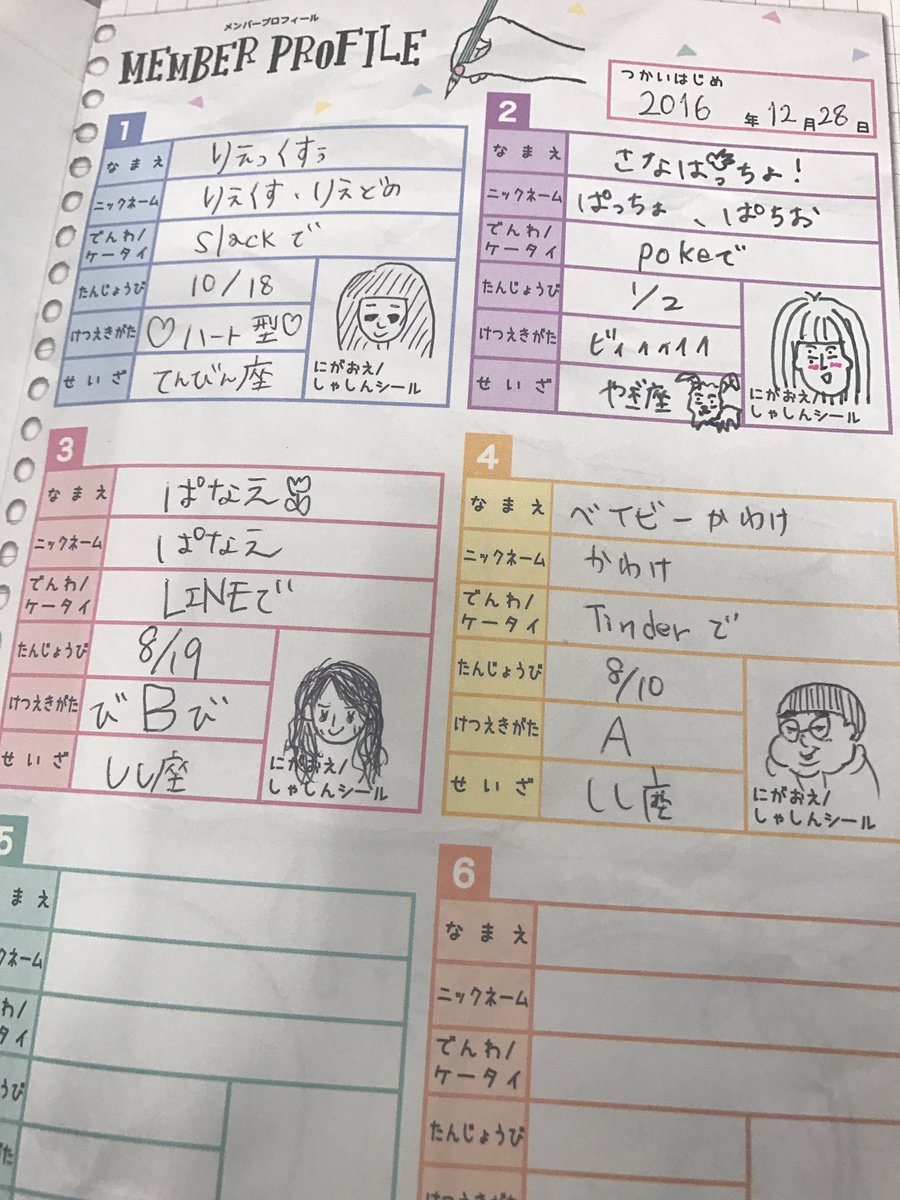 メンバープロフィール
MEMBER PROFILE
つかいはじめ
2016 年 12 月 28 日
1
なまえ りえっくすぅ
ニックネーム りえくす、りえどめ
でんわ/ケータイ Slackで
たんじょうび 10/18
けつえきがた ♡ハート型♡
せいざ てんびん座
にがおえ/
しゃしんシール
2
なまえ さなぱっちょ!
ニックネーム ぱっちょ、ぱちお
でんわ/ケータイ pokeで
たんじょうび 1/2
けつえきがた ビィィィィィ
せいざ やぎ座
にがおえ/
しゃしんシール
3
なまえ ぱなえ
ニックネーム ぱなえ
でんわ/ケータイ LINEで
たんじょうび 8/19
けつえきがた びBび
せいざ しし座
にがおえ/
しゃしんシール
4
なまえ ベイビーかわけ
ニックネーム かわけ
でんわ/ケータイ Tinderで
たんじょうび 8/10
けつえきがた A
せいざ しし座
にがおえ/
しゃしんシール
5
まえ
クネーム
わ/
タイ
うび
がた
6
なまえ
ニックネーム
でんわ/
ケータイ
たんじょうび
けつえきがた